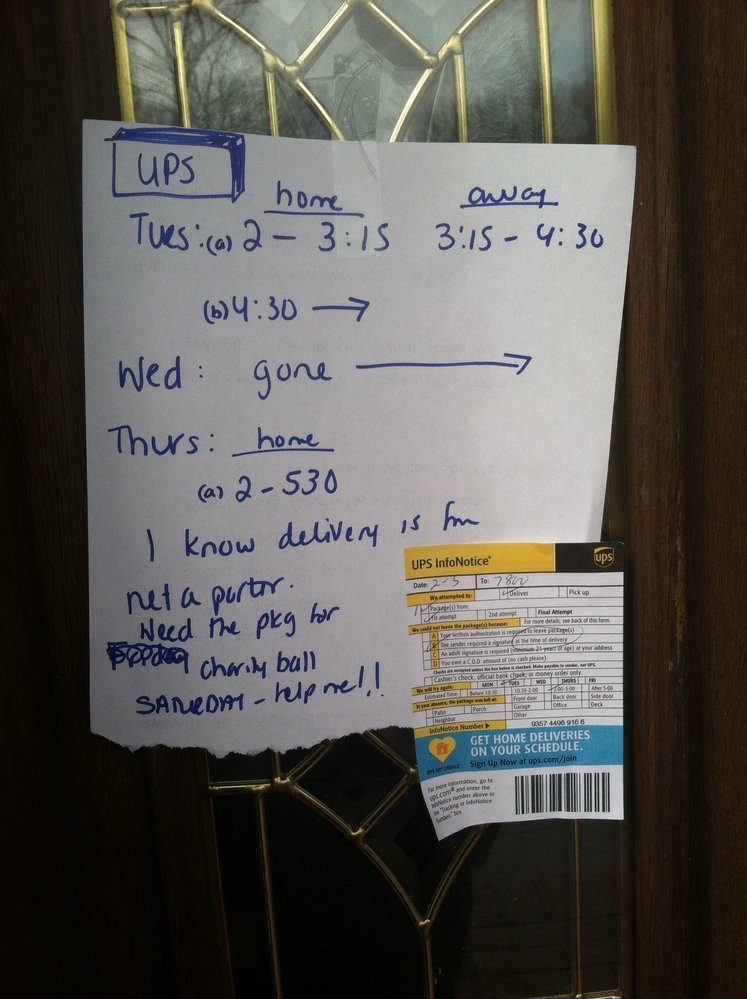 UPS
home away
Tues: (a) 2 - 3:15 3:15 - 4:30
(b) 4:30 →
Wed: gone →
Thurs: home
(a) 2 - 530
I know delivery is from
net a porter.
Need the pkg for
charity ball
SATURDAY - help me!!
UPS InfoNotice®
ups
Date: 2-5 To: 7800
We attempted to: Deliver Pick up
Package(s) from:
1st attempt 2nd attempt Final Attempt
We could not leave the package(s) because: For more details, see back of this form.
A Your written authorization is required to leave package(s)
B The sender required a signature at the time of delivery
C An adult signature is required (minimum 21 years of age) at your address
D You owe a C.O.D. amount of (no cash please):
Checks are accepted unless the box below is checked. Make payable to sender, not UPS.
Cashier's check, official bank check, or money order only.
We will try again: MON TUES WED THURS FRI
Estimated Time: Before 10:30 10:30-2:00 2:00-5:00 After 5:00
In your absence, the package was left at: Front door Back door Side door
Patio Porch Garage Office Deck
Neighbor Other
InfoNotice Number 9357 4496 916 6
GET HOME DELIVERIES
ON YOUR SCHEDULE.
UPS MY CHOICE Sign Up Now at ups.com/join
For more information, go to
ups.com® and enter the
InfoNotice number above in
the "Tracking or InfoNotice
Numbers" box.